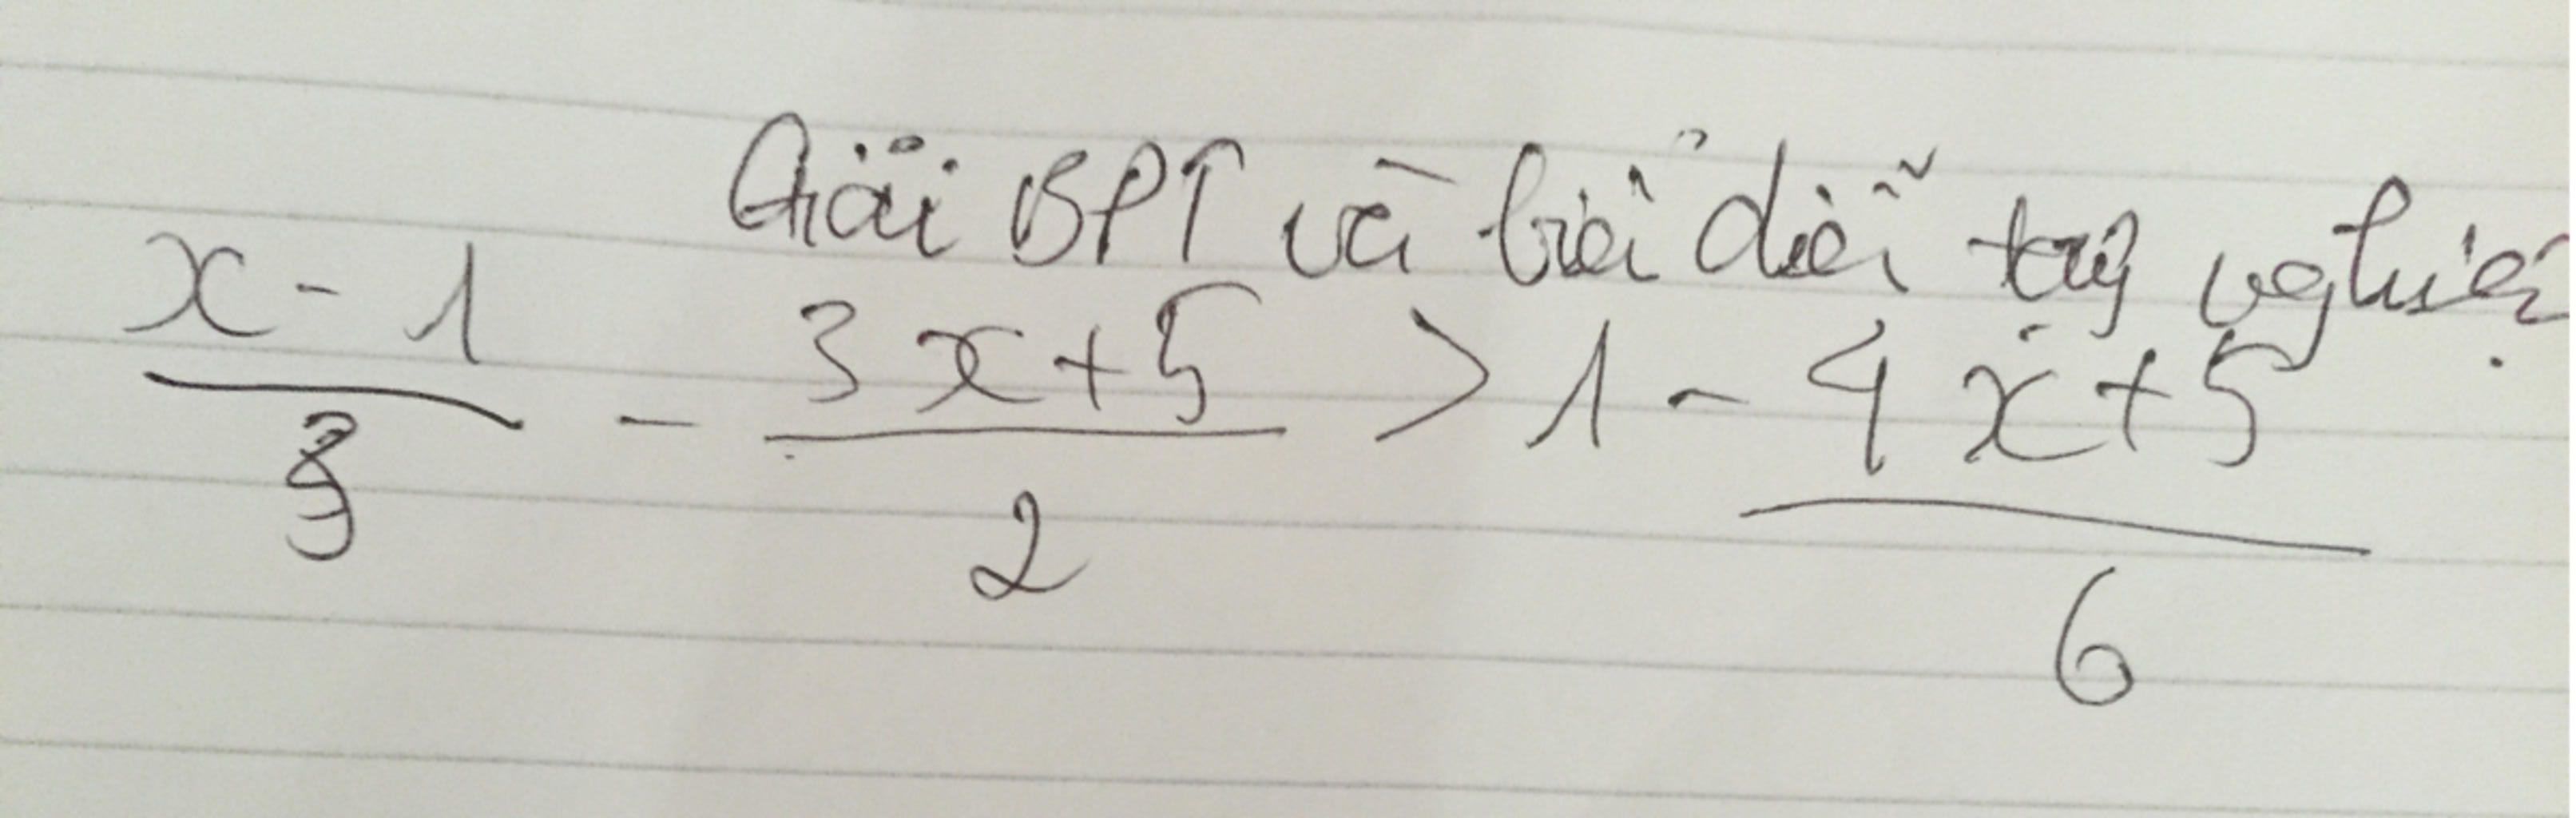 Giải BPT và biể diễ tập nghiệ
x - 1 / 3 - 3x+5 / 2 > 1 - 4x+5 / 6